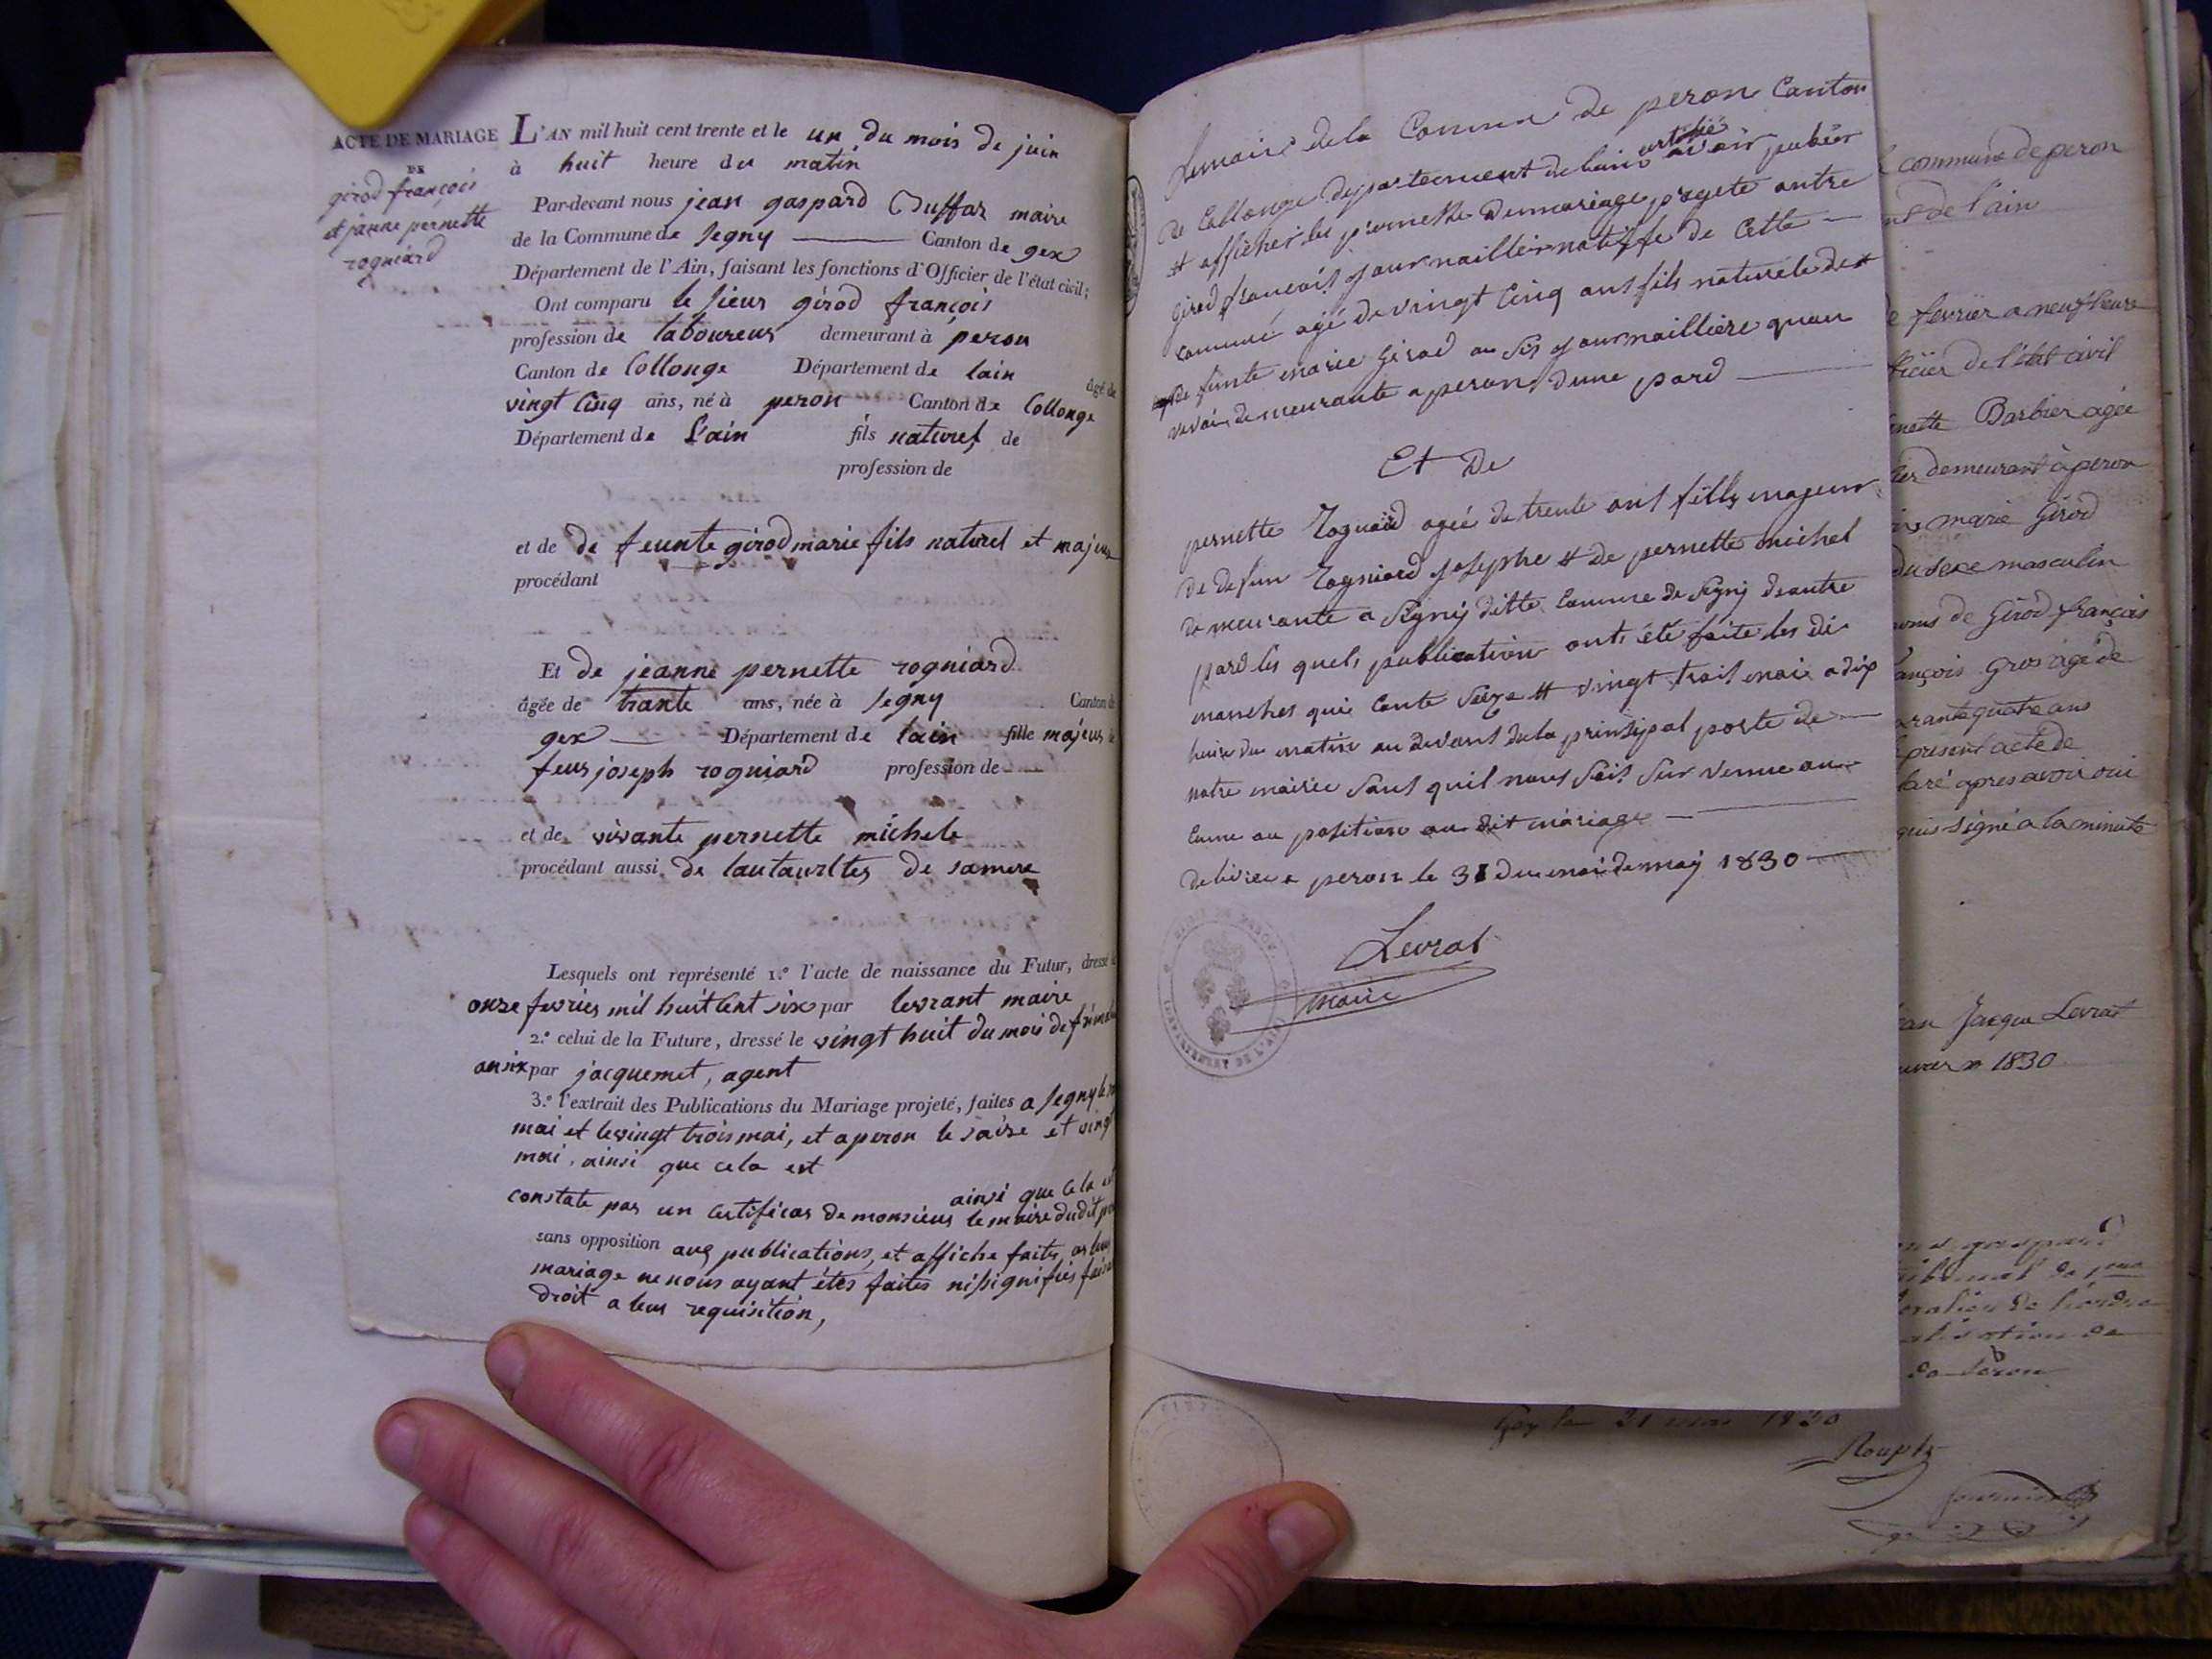 ACTE DE MARIAGE
DE
girod françois
et jeanne pernette
rogniard
L'AN mil huit cent trente et le un du mois de juin
à huit heure du matin
Par-devant nous jean gaspard Duffar maire
de la Commune de segny Canton de gex
Département de l'Ain, faisant les fonctions d'Officier de l'état civil;
Ont comparu le sieur girod françois
profession de laboureur demeurant à peron
Canton de Collonge Département de lain âgé de
vingt Cinq ans, né à peron Canton de Collonge
Département de l'ain fils naturel de
profession de
et de de feunte girod marie fils naturel et majeur
procédant
Et de jeanne pernette rogniard
âgée de trante ans, née à segny Canton de
gex Département de lain fille majeur de
feur joseph rogniard profession de
et de vivante pernette michele
procédant aussi de lautaurltes de samere
Lesquels ont représenté 1.º l'acte de naissance du Futur, dressé le
onze fevrier mil huit Cent six par levrant maire
2.º celui de la Future, dressé le vingt huit du mois de
an six par jacquemet, agent
3.º l'extrait des Publications du Mariage projeté, faites a segny le
mai et le vingt trois mai, et a peron le saize et vingt
mai, ainsi que cela est
ainsi que cela est
constate par un Certificas de monsieur le maire dudit
sans opposition aux publications, et affiche faite, as leur
mariage ne nous ayant étés faites ni signifies
droit a leur requisition,
Lemaire dela Commune de peron Canton
de Collonge departement de lain certifié avoir publier
et afficher les promesse demariage projete antre
girod françois journaillier natiffe de Cette
commune agé de vingt Cinq ans fils naturele de
defunte marie Girod journaillière quan
vivai demeurante a peron dune pard
Et De
pernette Rogniard ageé de trente ans fille majeur
De defun Rogniard josephe et de pernette michel
demeurante a Signij ditte Commune de Signij deautre
pard les quels publication onts été faite les di
manches qui Conte Seize et vingt trois mai a dix
heure du matin au devant dela prinsipal porte de
notre mairie sans quil nous soit sur venue au
cune au position au dit mariage
delivree a peron le 31 du moi de maij 1830
Levrat
maire
MAIRIE DE PERON
DÉPARTEMENT DE L'AIN
commune de peron
de l'ain
fevrier a neuf heure
de l'état civil
Barbier agée
demeurant à peron
marie Girod
du sexe masculin
de Girod françois
Gros agé de
quarante quatre ans
present acte de
apres avoir oui
signé a la minute
Jacque Levrat
1830
gaspard
Gex le 31 mai 1830
Roup